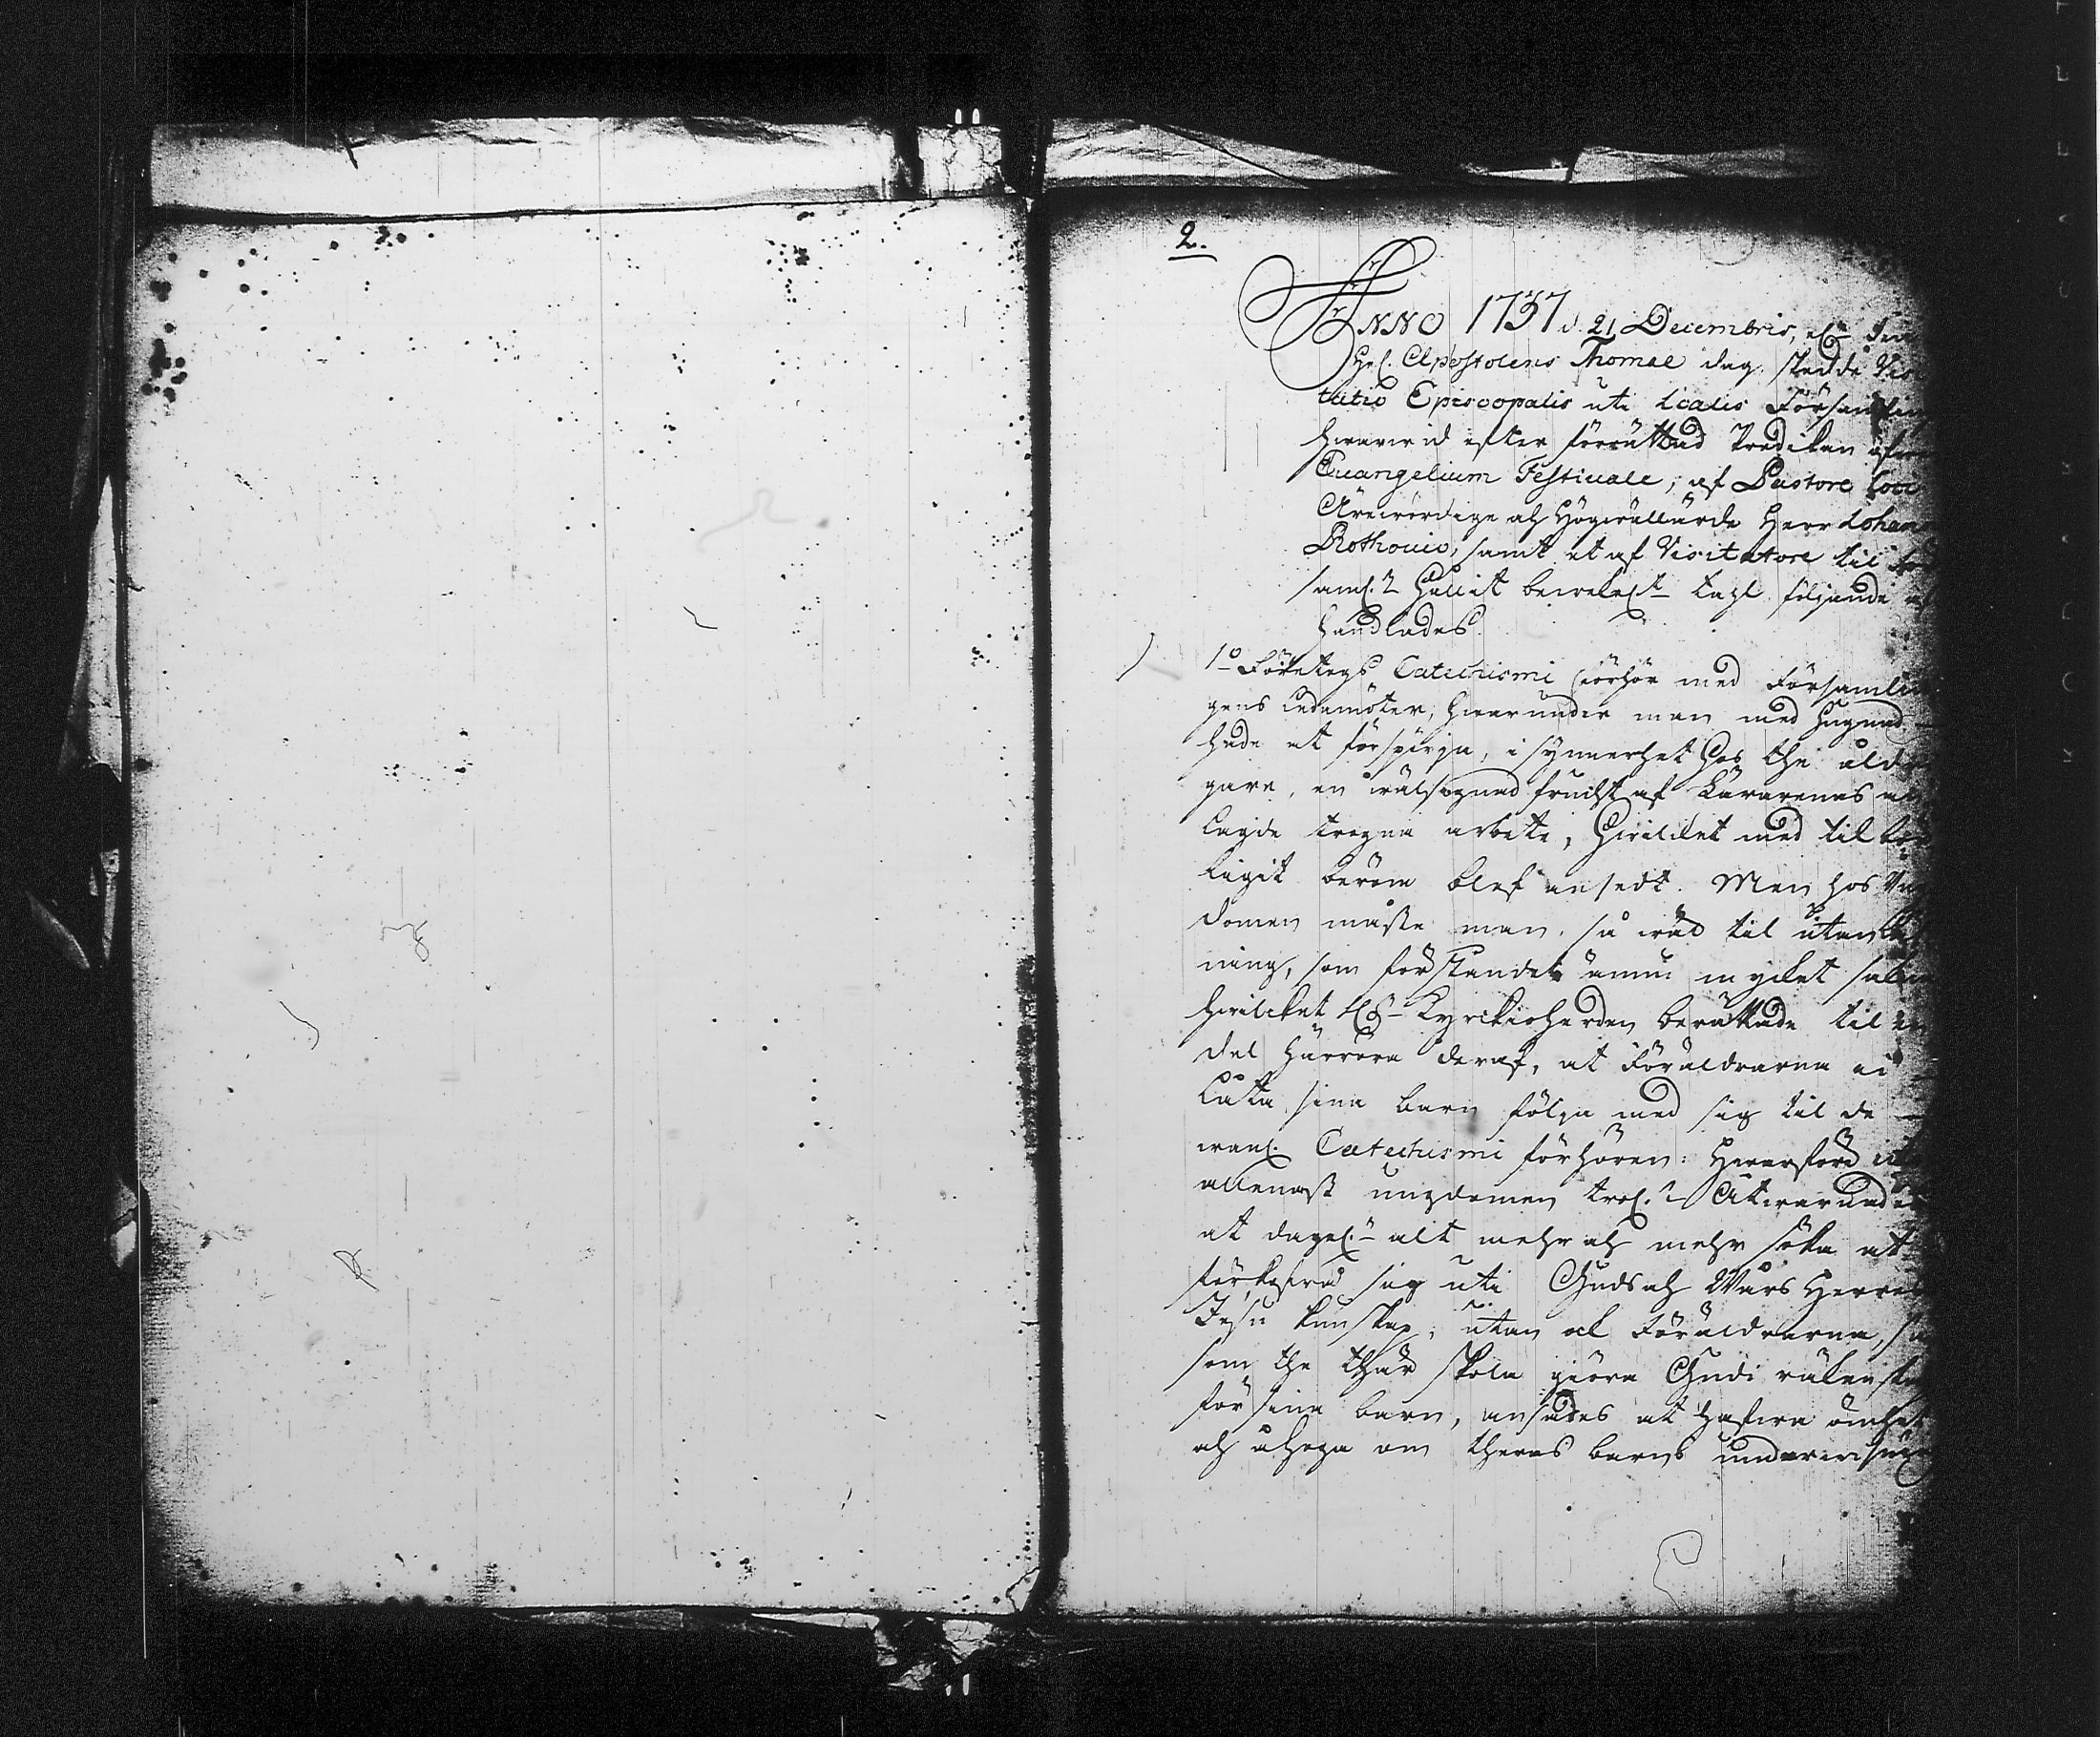 2.
ANNO 1737 d. 21 Decembris, el. den
Hel. Apostolens Thomae dag, skedde Visi
tatio Episcopalis uti Icalis Församling
hwarwid efter förrättad Predikan öfwer
Euangelium Festiuale, af Pastore loci
Ärewördige och Höglärde Herr Johan
Rothouio, samt et af Visitatore til
saml. hållit tahl följande
handlades.
1o Företogs Catechismi förhör med Församlin
gens Ledamöter, hwarunder man med hugnad
hade at förspörja, i synnerhet hos the åldri
gare, en wälsignad frucht af Lärarenas an
lagde trogna arbete, hwilcket med til bör
ligit beröm blef ansedt. Men hos Ung
domen måste man, så wäl til utan
ning, som förståndet ännu mycket sakna
hwilcket H. Kyrckioherden berättade til en
del härröra deraf, at Föräldrarna ei
låta sina barn följa med sig til de
wanl. Catechismi förhören: Hwarföre icke
allenast ungdomen tröl. Åtwarnades
at dagel. alt mehr och mehr söka at
förkofra sig uti Guds och Wårs Herres
Jesu kunskap, utan ock Föräldrarna, så
som the ther skola giöra Gudi räkenskap
för sina barn, ansades at hafwa ömhet
och åhoga om theras barns underwisning